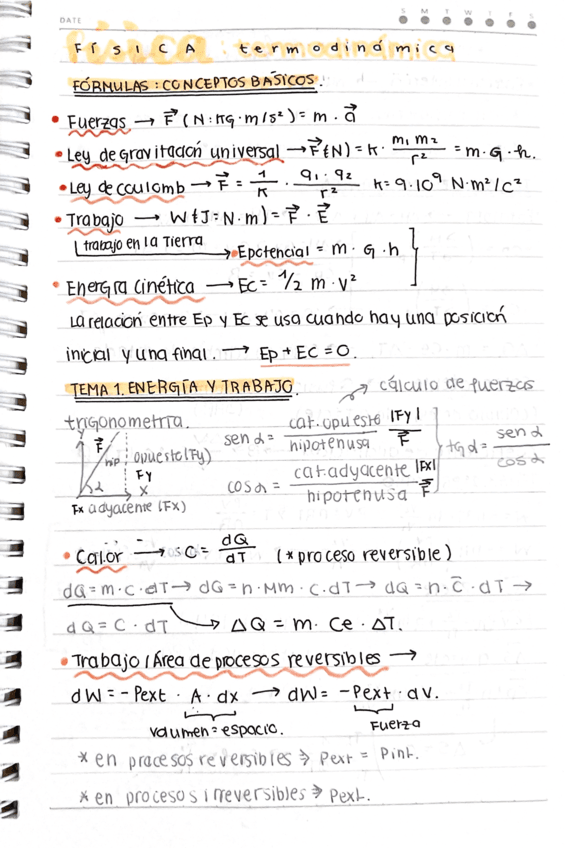 DATE S M T W T F S
Física: termodinámica
FÓRMULAS: CONCEPTOS BÁSICOS.
• Fuerzas → F⃗ (N: KG · m/s²) = m · a⃗
• Ley de gravitación universal → F⃗ (N) = K · m₁ m₂ / r² = m · G · h.
• Ley de coulomb → F⃗ = 1/K · q₁ · q₂ / r² K = 9 · 10⁹ N · m²/C²
• Trabajo → W (J = N · m) = F⃗ · E⃗
trabajo en la Tierra → Epotencial = m · G · h
• Energía cinética → Ec = 1/2 m · v²
La relación entre Ep y Ec se usa cuando hay una posición
inicial y una final. → Ep + Ec = 0.
TEMA 1. ENERGÍA Y TRABAJO. → cálculo de fuerzas
trigonometría.
y F⃗ hip opuesto (Fy)
Fy
α X
Fx adyacente (Fx)
sen α = cat. opuesto |Fy| / hipotenusa F⃗
cos α = cat. adyacente |Fx| / hipotenusa F⃗
tg α = sen α / cos α
• Calor → C = dQ / dT (* proceso reversible)
dQ = m · c · dT → dQ = n · Mm · c · dT → dQ = n · C̄ · dT →
dQ = C · dT → ΔQ = m · Ce · ΔT.
• Trabajo / Área de procesos reversibles →
dW = -Pext · A · dx → dW = -Pext · dv.
volumen = espacio. Fuerza
* en procesos reversibles ⇒ Pext = Pint.
* en procesos irreversibles ⇒ Pext.